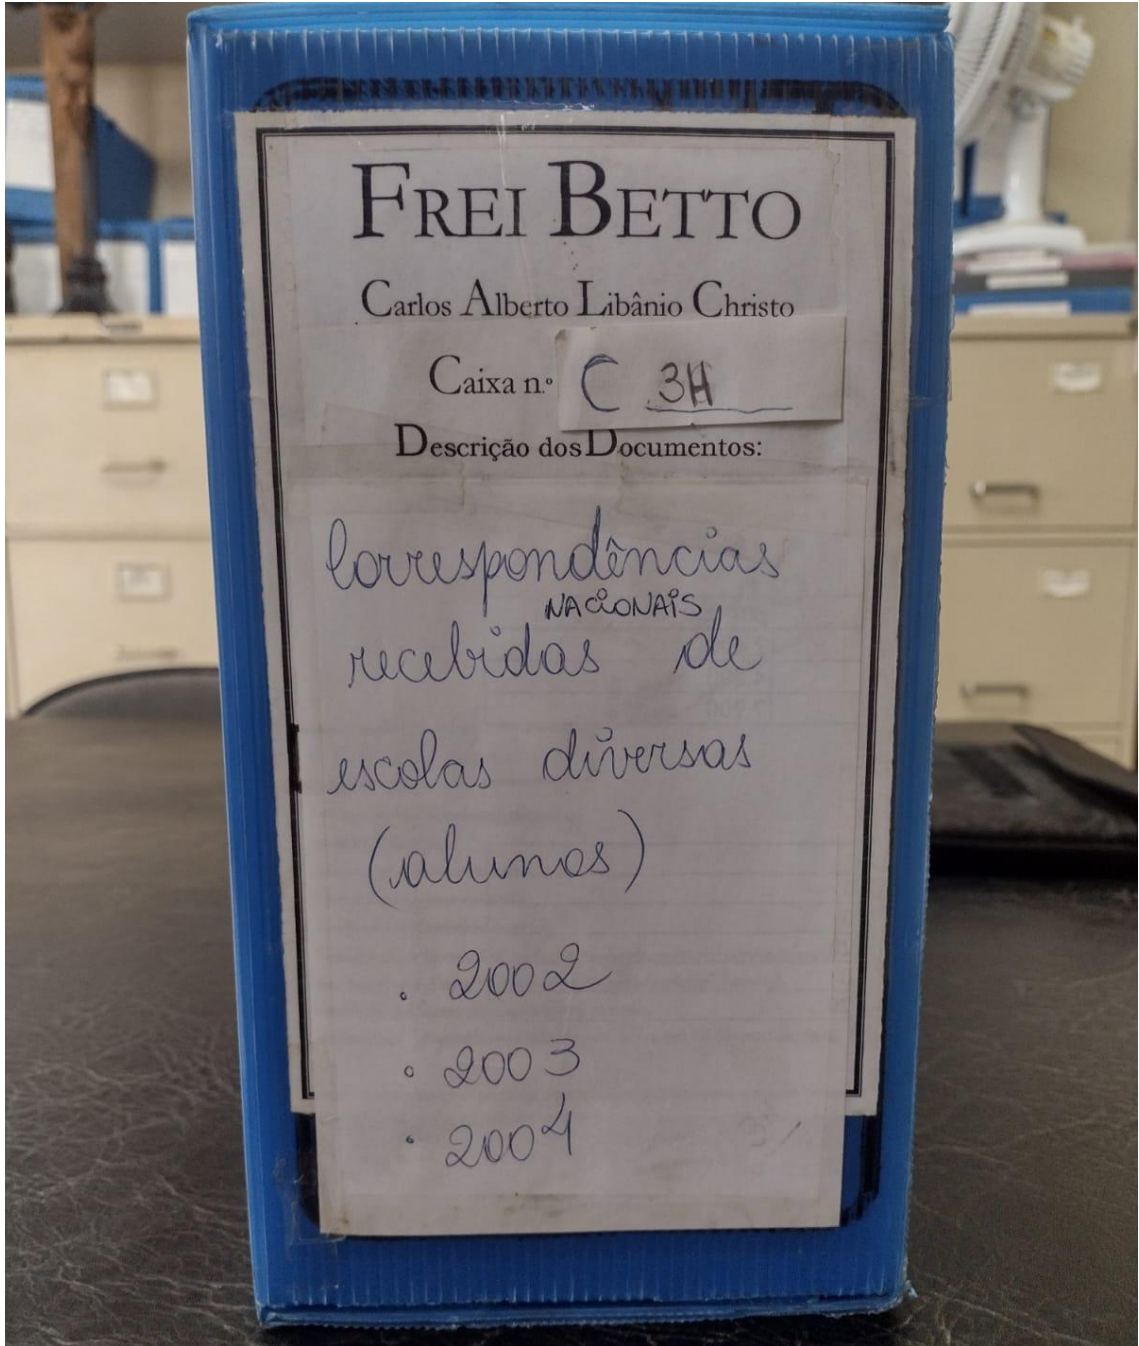 FREI BETTO
Carlos Alberto Libânio Christo
Caixa n.º C 3H
Descrição dos Documentos:
Correspondências
NACIONAIS
recebidas de
escolas diversas
(alunos)
. 2002
. 2003
. 2004